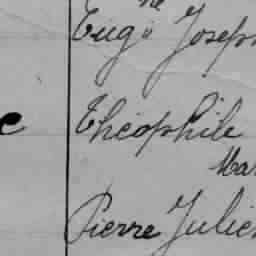 Eug.ne Joseph
c Théophile
Mar
Pierre Julien